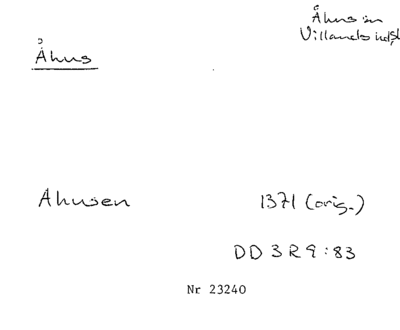 Åhus sn
Villands hd, Sk
Åhus
Ahusen 1371 (orig.)
DD 3 R 9:83
Nr 23240